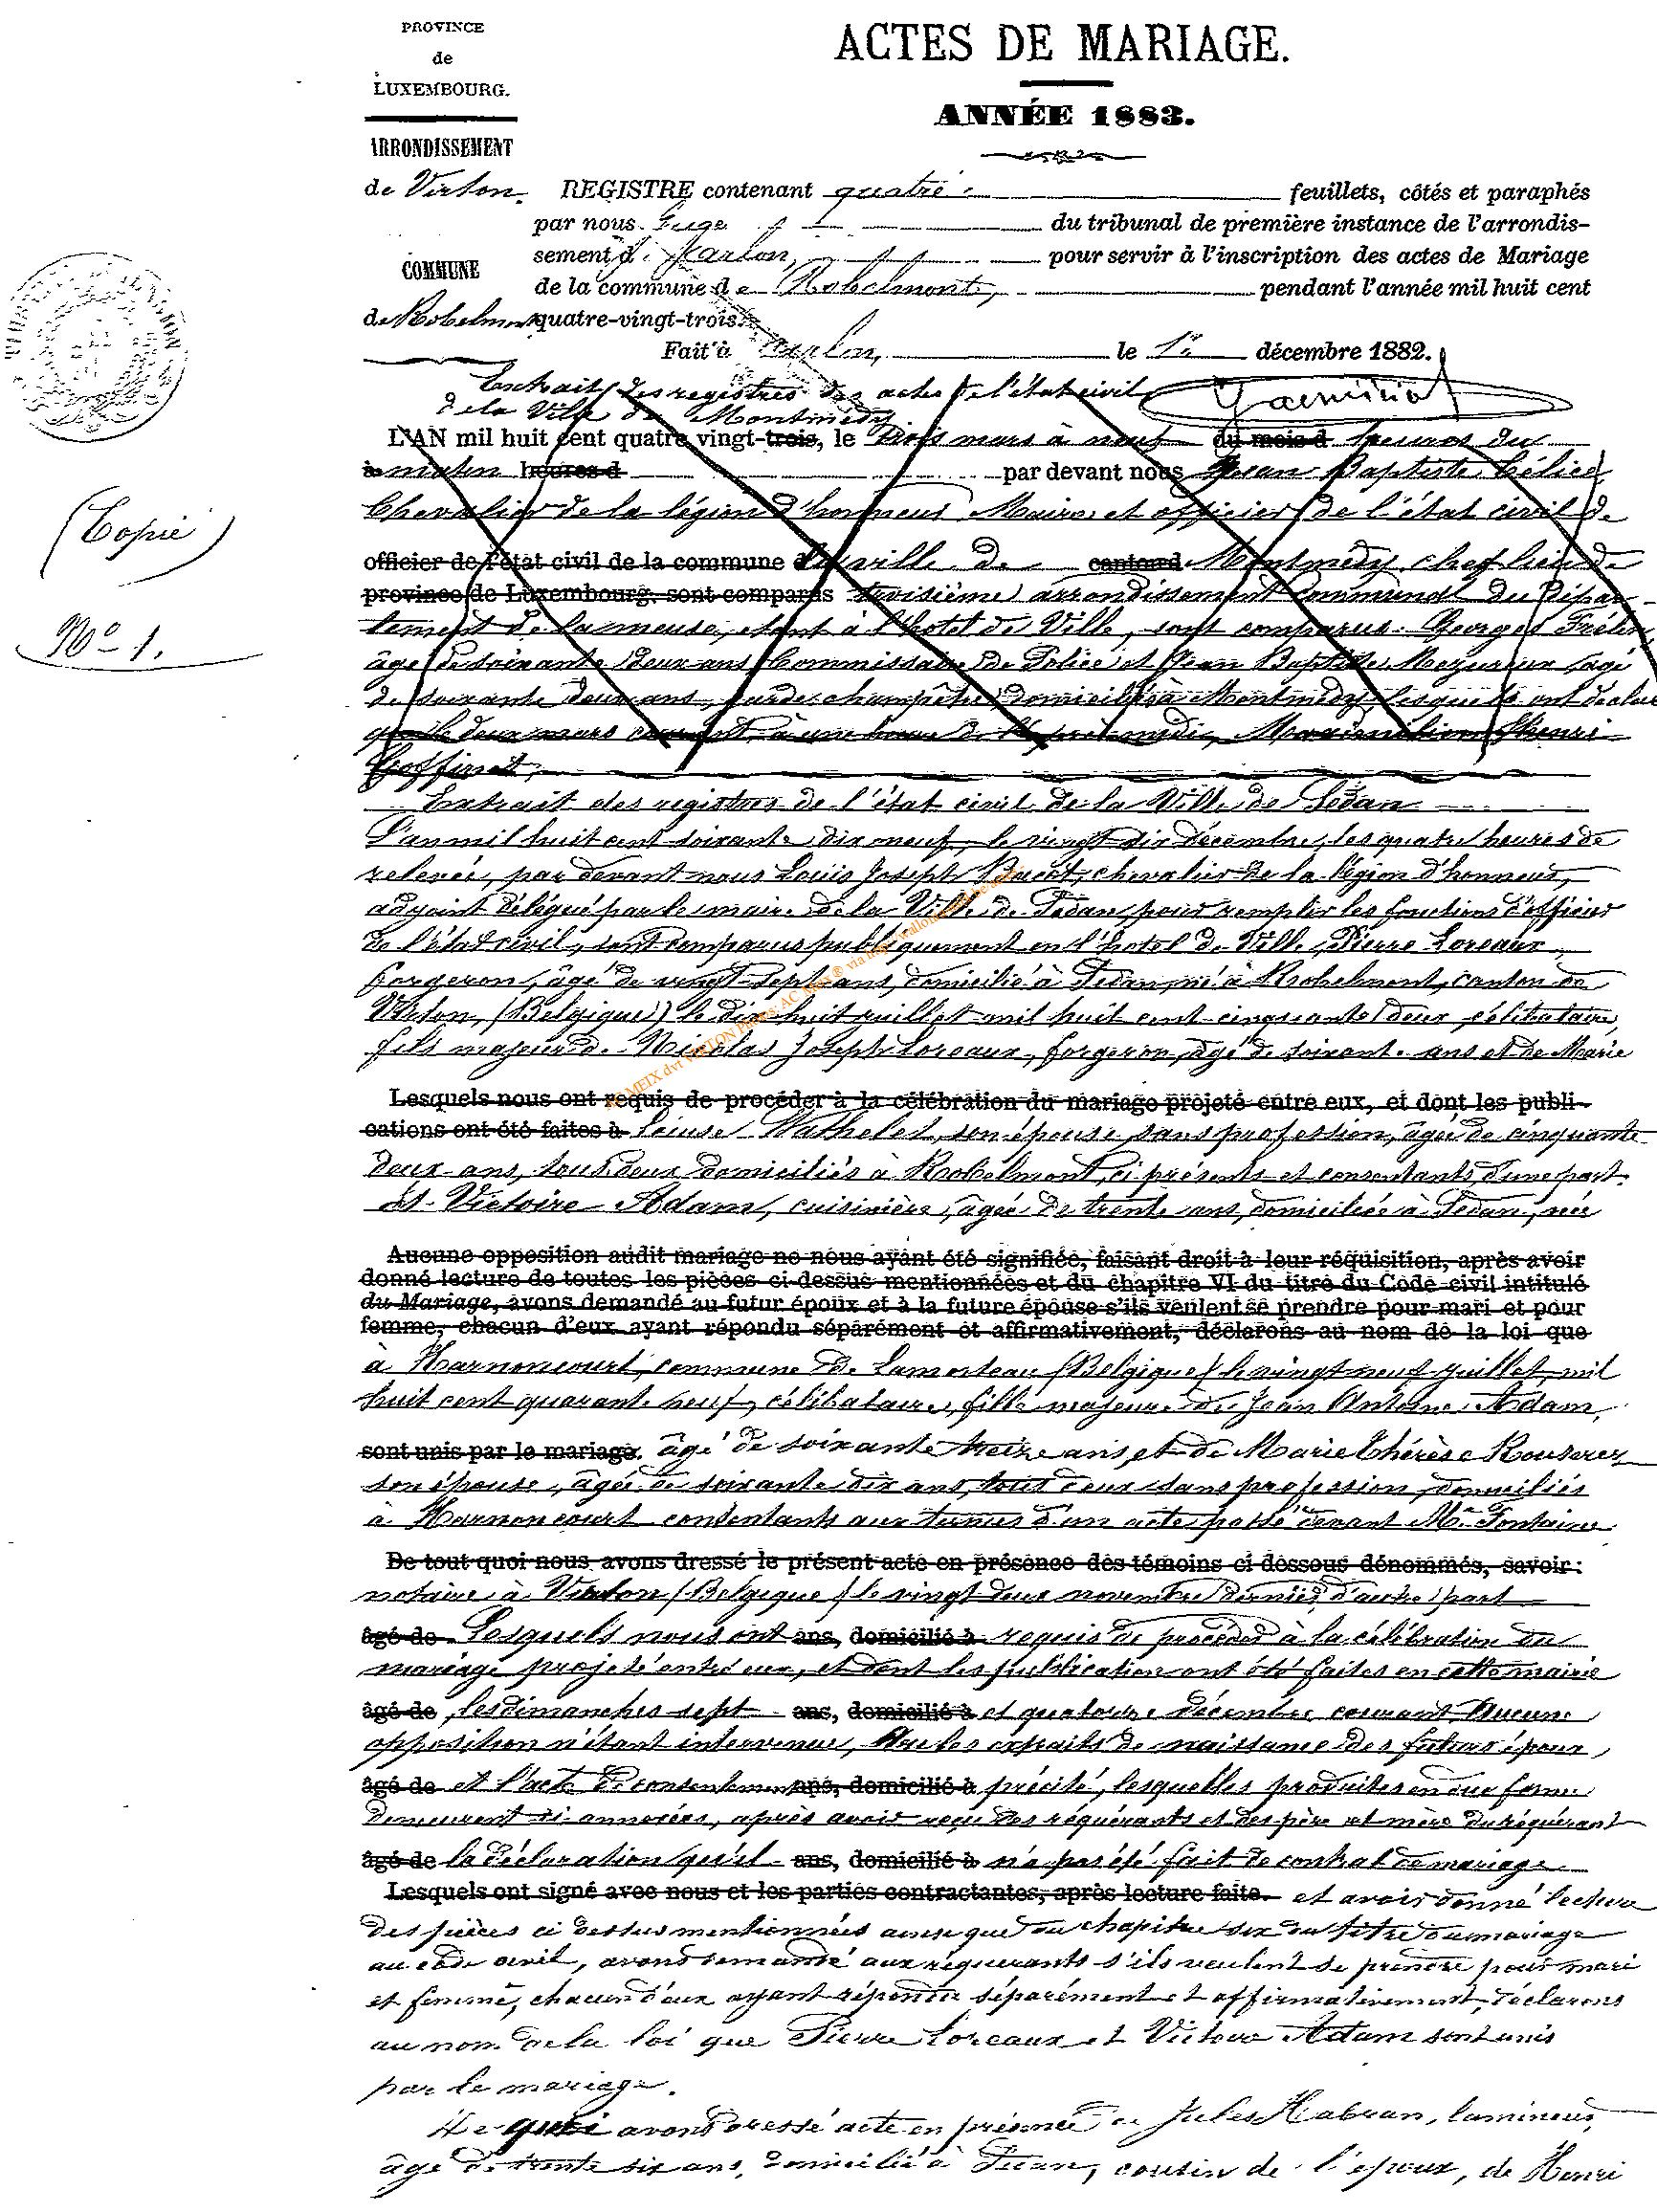 PROVINCE
de
LUXEMBOURG.
ARRONDISSEMENT
de Virton.
COMMUNE
de Robelmont
ACTES DE MARIAGE.
ANNÉE 1883.
REGISTRE contenant quatre feuillets, côtés et paraphés
par nous Juge du tribunal de première instance de l'arrondis-
sement d'Arlon, pour servir à l'inscription des actes de Mariage
de la commune de Robelmont, pendant l'année mil huit cent
quatre-vingt-trois.
Fait à Arlon, le 1er décembre 1882.
(Copie)
No 1.
Extrait des registres des actes de l'état civil
de la Ville de Montmédy
L'AN mil huit cent quatre vingt-trois, le trois mars à neuf du mois d heures du
à matin heures d par devant nous Jean Baptiste
Chevalier de la légion d'honneur Maire et officier de l'état civil de
officier de l'état civil de la commune d la ville de canton d Montmédy chef lieu de
province de Luxembourg, sont comparus troisième arrondissement communal du dépar-
tement de la meuse, étant à l'hotel de Ville, sont comparus Georges
âgé de soixante deux ans Commissaire de Police et Jean Baptiste agé
de soixante deux ans, garde champêtre domiciliés à Montmédy, lesquels ont déclaré
que le deux mars courant, à une heure de l'après-midi, Maximilien Henri
Goffinet,
Extrait des registres de l'état civil de la Ville de Sedan
L'an mil huit cent soixante dix neuf, le vingt six décembre, les quatre heures de
relevée, par devant nous Louis Joseph Bacot, chevalier de la légion d'honneur,
adjoint délégué par le maire de la Ville de Sedan pour remplir les fonctions d'officier
de l'état civil, sont comparus publiquement en l'hotel de Ville, Pierre Loreaux,
forgeron, âgé de vingt-sept ans, domicilié à Sedan, né à Robelmont, canton de
Virton, (Belgique) le dix huit juillet mil huit cent cinquante deux, célibataire,
fils majeur de Nicolas Joseph Loreaux, forgeron, âgé de soixante ans et de Marie
Lesquels nous ont requis de procéder à la célébration du mariage projeté entre eux, et dont les publi-
cations ont été faites à Louise Wathelet, son épouse, sans profession, âgée de cinquante
deux ans, tous deux domiciliés à Robelmont, ci présents et consentants, d'une part.
Et Victoire Adam, cuisinière, âgée de trente ans, domiciliée à Sedan, née
Aucune opposition audit mariage ne nous ayant été signifiée, faisant droit à leur réquisition, après avoir
donné lecture de toutes les pièces ci-dessus mentionnées et du chapitre VI du titre du Code civil intitulé
du Mariage, avons demandé au futur époux et à la future épouse s'ils veulent se prendre pour mari et pour
femme, chacun d'eux ayant répondu séparément et affirmativement, déclarons au nom de la loi que
à Harnoncourt, commune de Lamorteau (Belgique) le vingt neuf juillet mil
huit cent quarante neuf, célibataire, fille majeure de Jean Antoine Adam,
sont unis par le mariage. âgé de soixante treize ans, et de Marie Thérèse
son épouse, âgée de soixante dix ans, tous deux sans profession, domiciliés
à Harnoncourt consentants aux termes d'un acte passé devant Me Fontaine
De tout quoi nous avons dressé le présent acte en présence des témoins ci-dessous dénommés, savoir:
notaire à Virton (Belgique) le vingt deux novembre dernier, d'autre part
âgé de Lesquels nous ont ans, domicilié à requis de procéder à la célébration du
mariage projeté entre eux, et dont les publication ont été faites en cette mairie
âgé de les dimanches sept ans, domicilié à et quatorze décembre courant. Aucune
opposition n'étant intervenue, Vu les extraits de naissance des futurs époux
âgé de et l'acte de consentement ans, domicilié à précité, lesquelles produites en due forme
demeurent ci-annexées, après avoir reçu des requérants et des père et mère du requérant
âgé de la déclaration qu'il ans, domicilié à n'a pas été fait de contrat de mariage
Lesquels ont signé avec nous et les parties contractantes, après lecture faite. et avoir donné lecture
des pièces ci dessus mentionnées ainsi que du chapitre six du titre du mariage
au code civil, avons demandé aux requérants s'ils veulent se prendre pour mari
et femme, chacun d'eux ayant répondu séparément et affirmativement, déclarons
au nom de la loi que Pierre Loreaux et Victoire Adam sont unis
par le mariage.
De quoi avons dressé acte en présence de Jules Habran, lamineur,
âgé de trente six ans, domicilié à Sedan, cousin de l'époux, de Henri